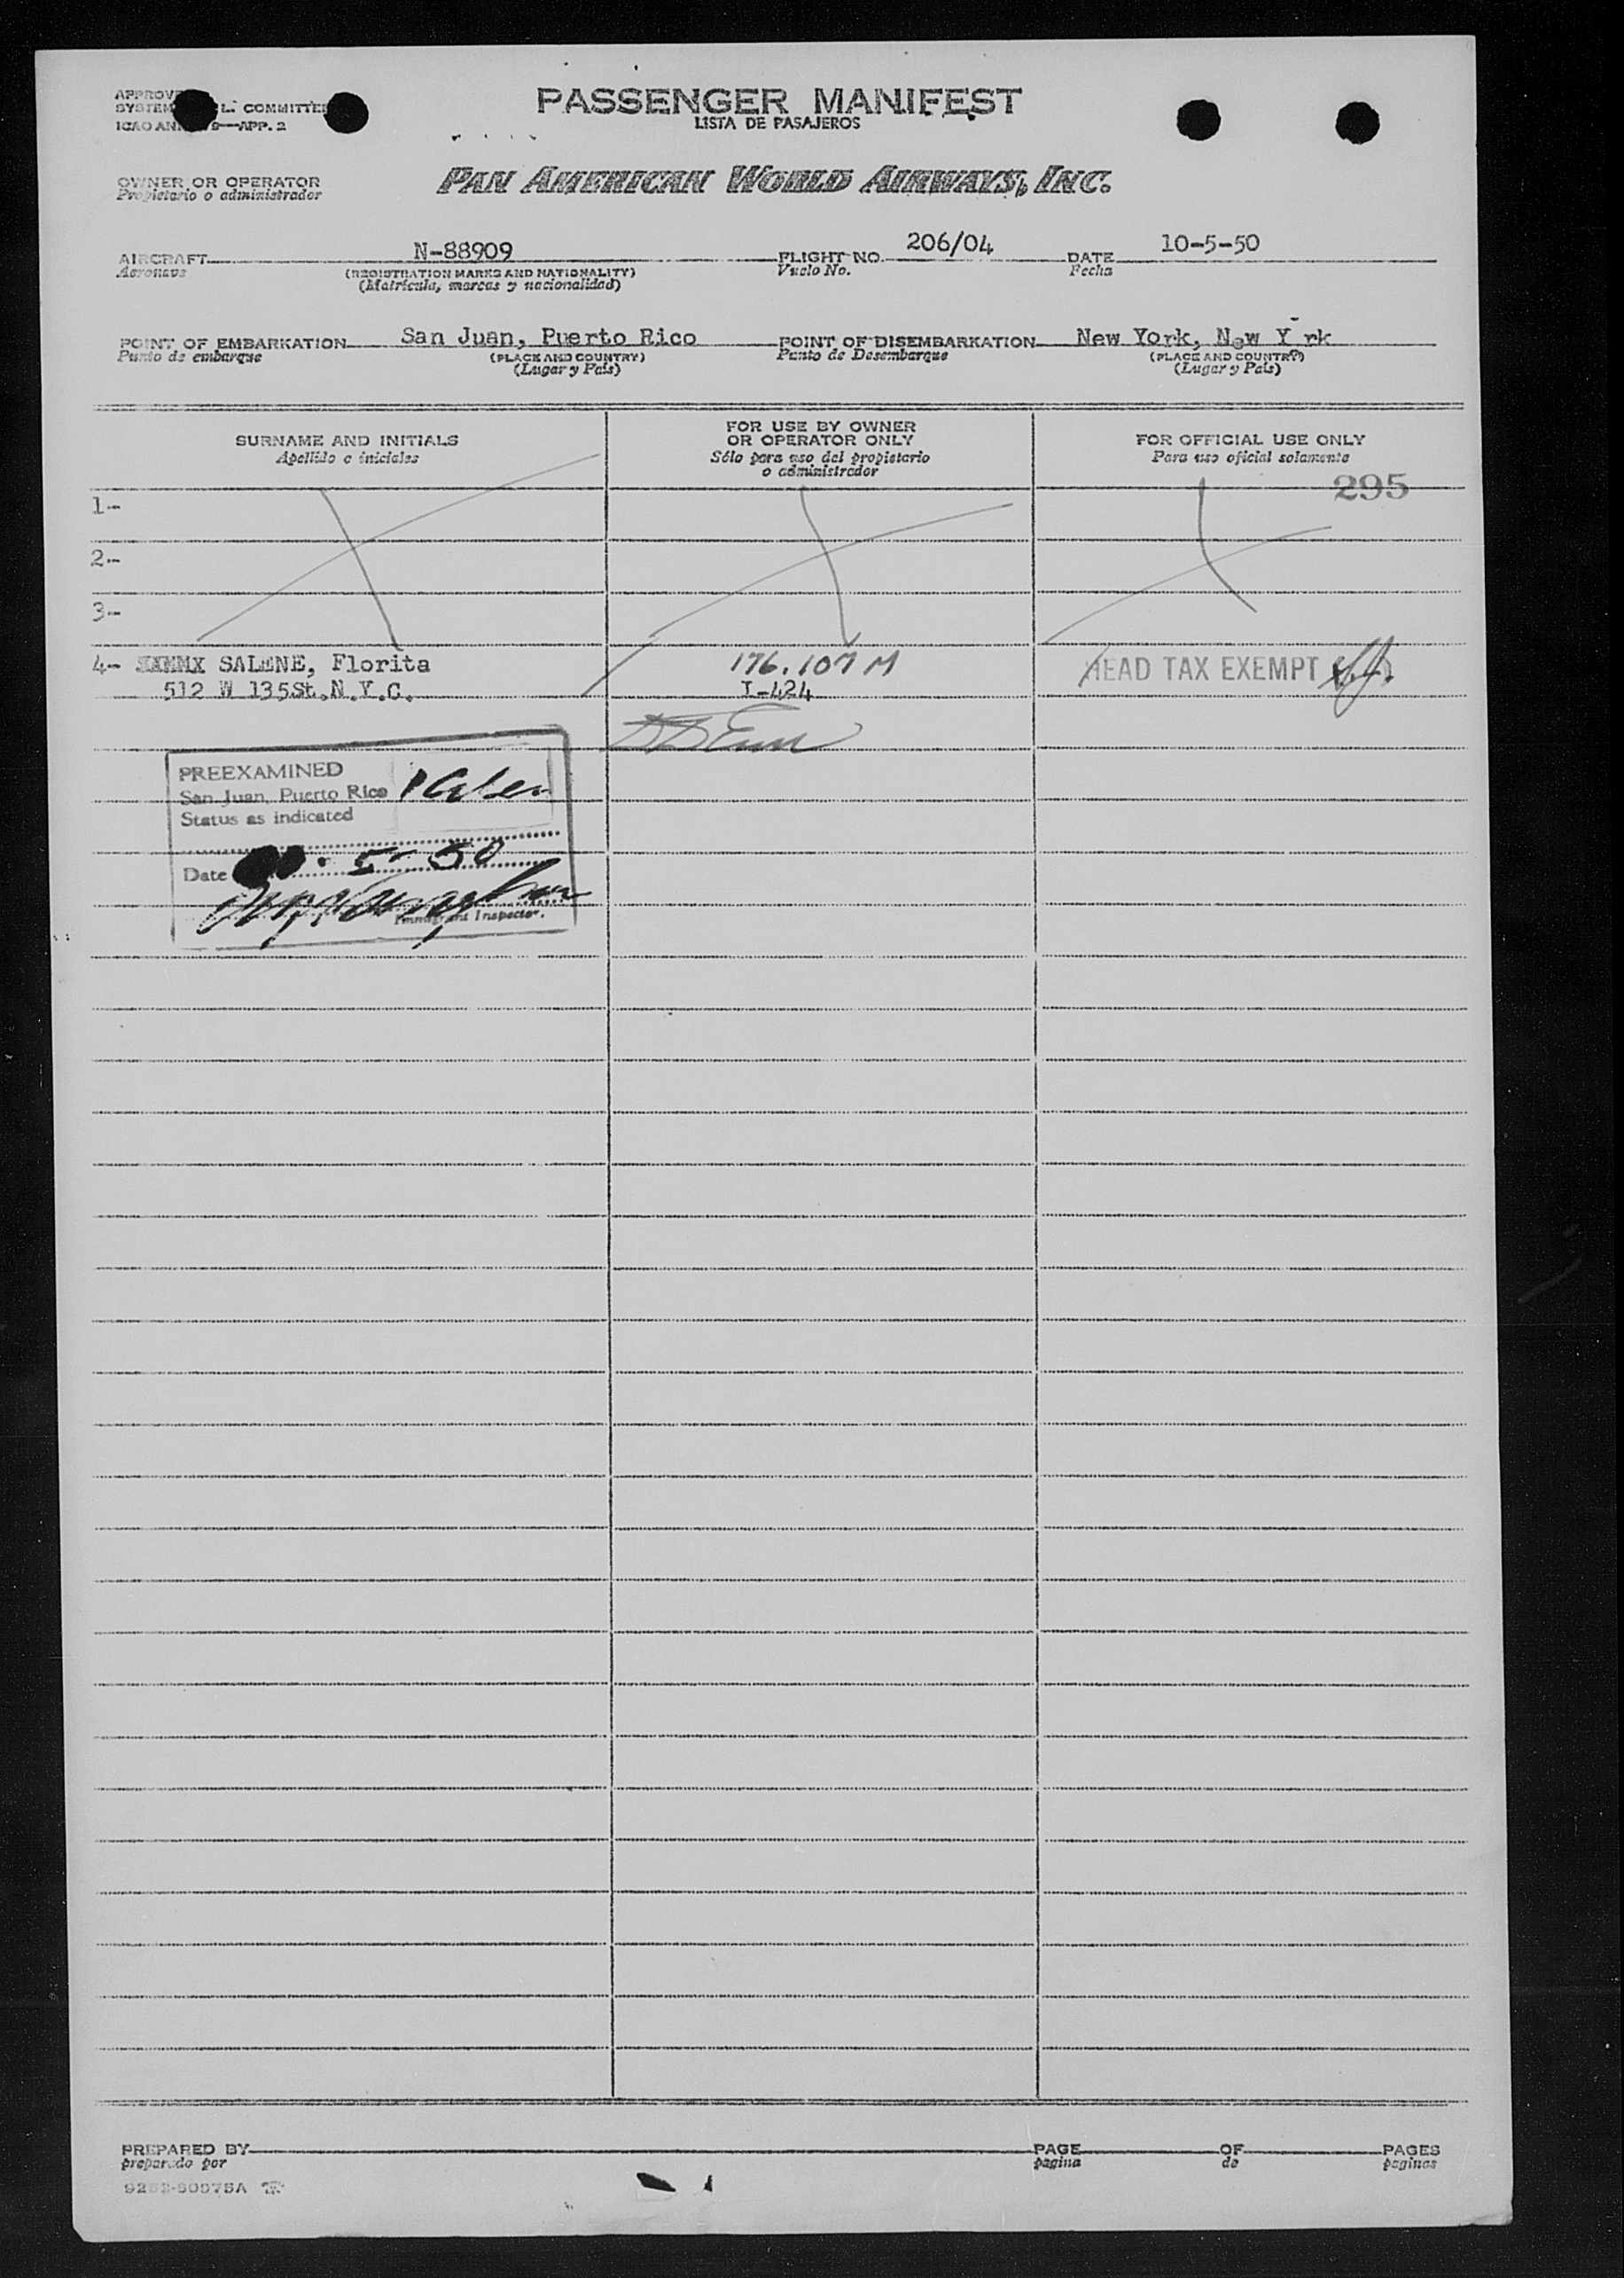 PASSENGER MANIFEST
LISTA DE PASAJEROS
COMMITTEE
APP. 2
OWNER OR OPERATOR
Propietario o administrador
PAN AMERICAN WORLD AIRWAYS, INC.
AIRCRAFT N-88909 FLIGHT NO. 206/04 DATE 10-5-50
Aeronave (REGISTRATION MARKS AND NATIONALITY) Vuelo No. Fecha
(Matrícula, marcas y nacionalidad)
POINT OF EMBARKATION San Juan, Puerto Rico POINT OF DISEMBARKATION New York, New Y rk
Punto de embarque (PLACE AND COUNTRY) Punto de Desembarque (PLACE AND COUNTRY)
(Lugar y País) (Lugar y País)
SURNAME AND INITIALS
Apellido e iniciales
FOR USE BY OWNER
OR OPERATOR ONLY
Sólo para uso del propietario
o administrador
FOR OFFICIAL USE ONLY
Para uso oficial solamente
295
1-
2-
3-
4- SALENE, Florita 176.107 M HEAD TAX EXEMPT
512 W 135St.N.Y.C. I-424
PREEXAMINED
San Juan, Puerto Rico
Status as indicated
Date 5-50
Immigrant Inspector.
PREPARED BY PAGE OF PAGES
preparado por página de páginas